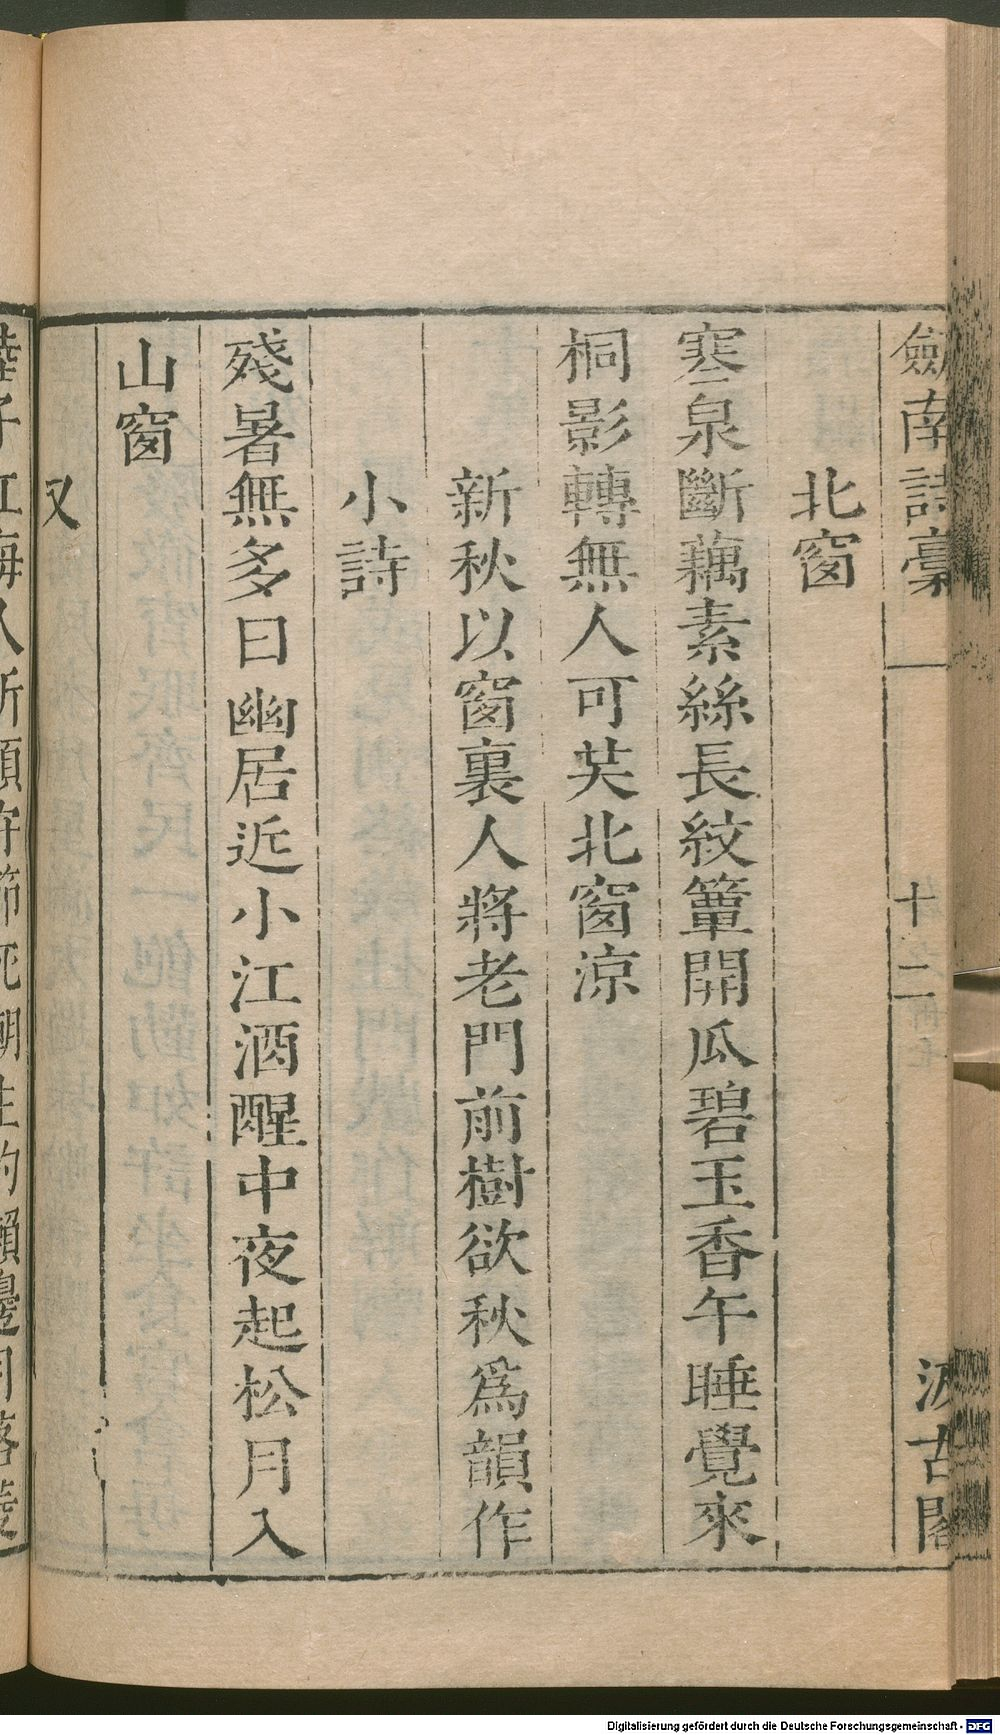 劍南詩稾 十二 汲古閣
北窗
寒泉斷藕素絲長紋簟開瓜碧玉香午睡覺來
桐影轉無人可共北窗涼
新秋以窗裏人將老門前樹欲秋爲韻作
小詩
殘暑無多日幽居近小江酒醒中夜起松月入
山窗
又
江海人所願守節死湖生的瀨邊月落
Digitalisierung gefördert durch die Deutsche Forschungsgemeinschaft - DFG